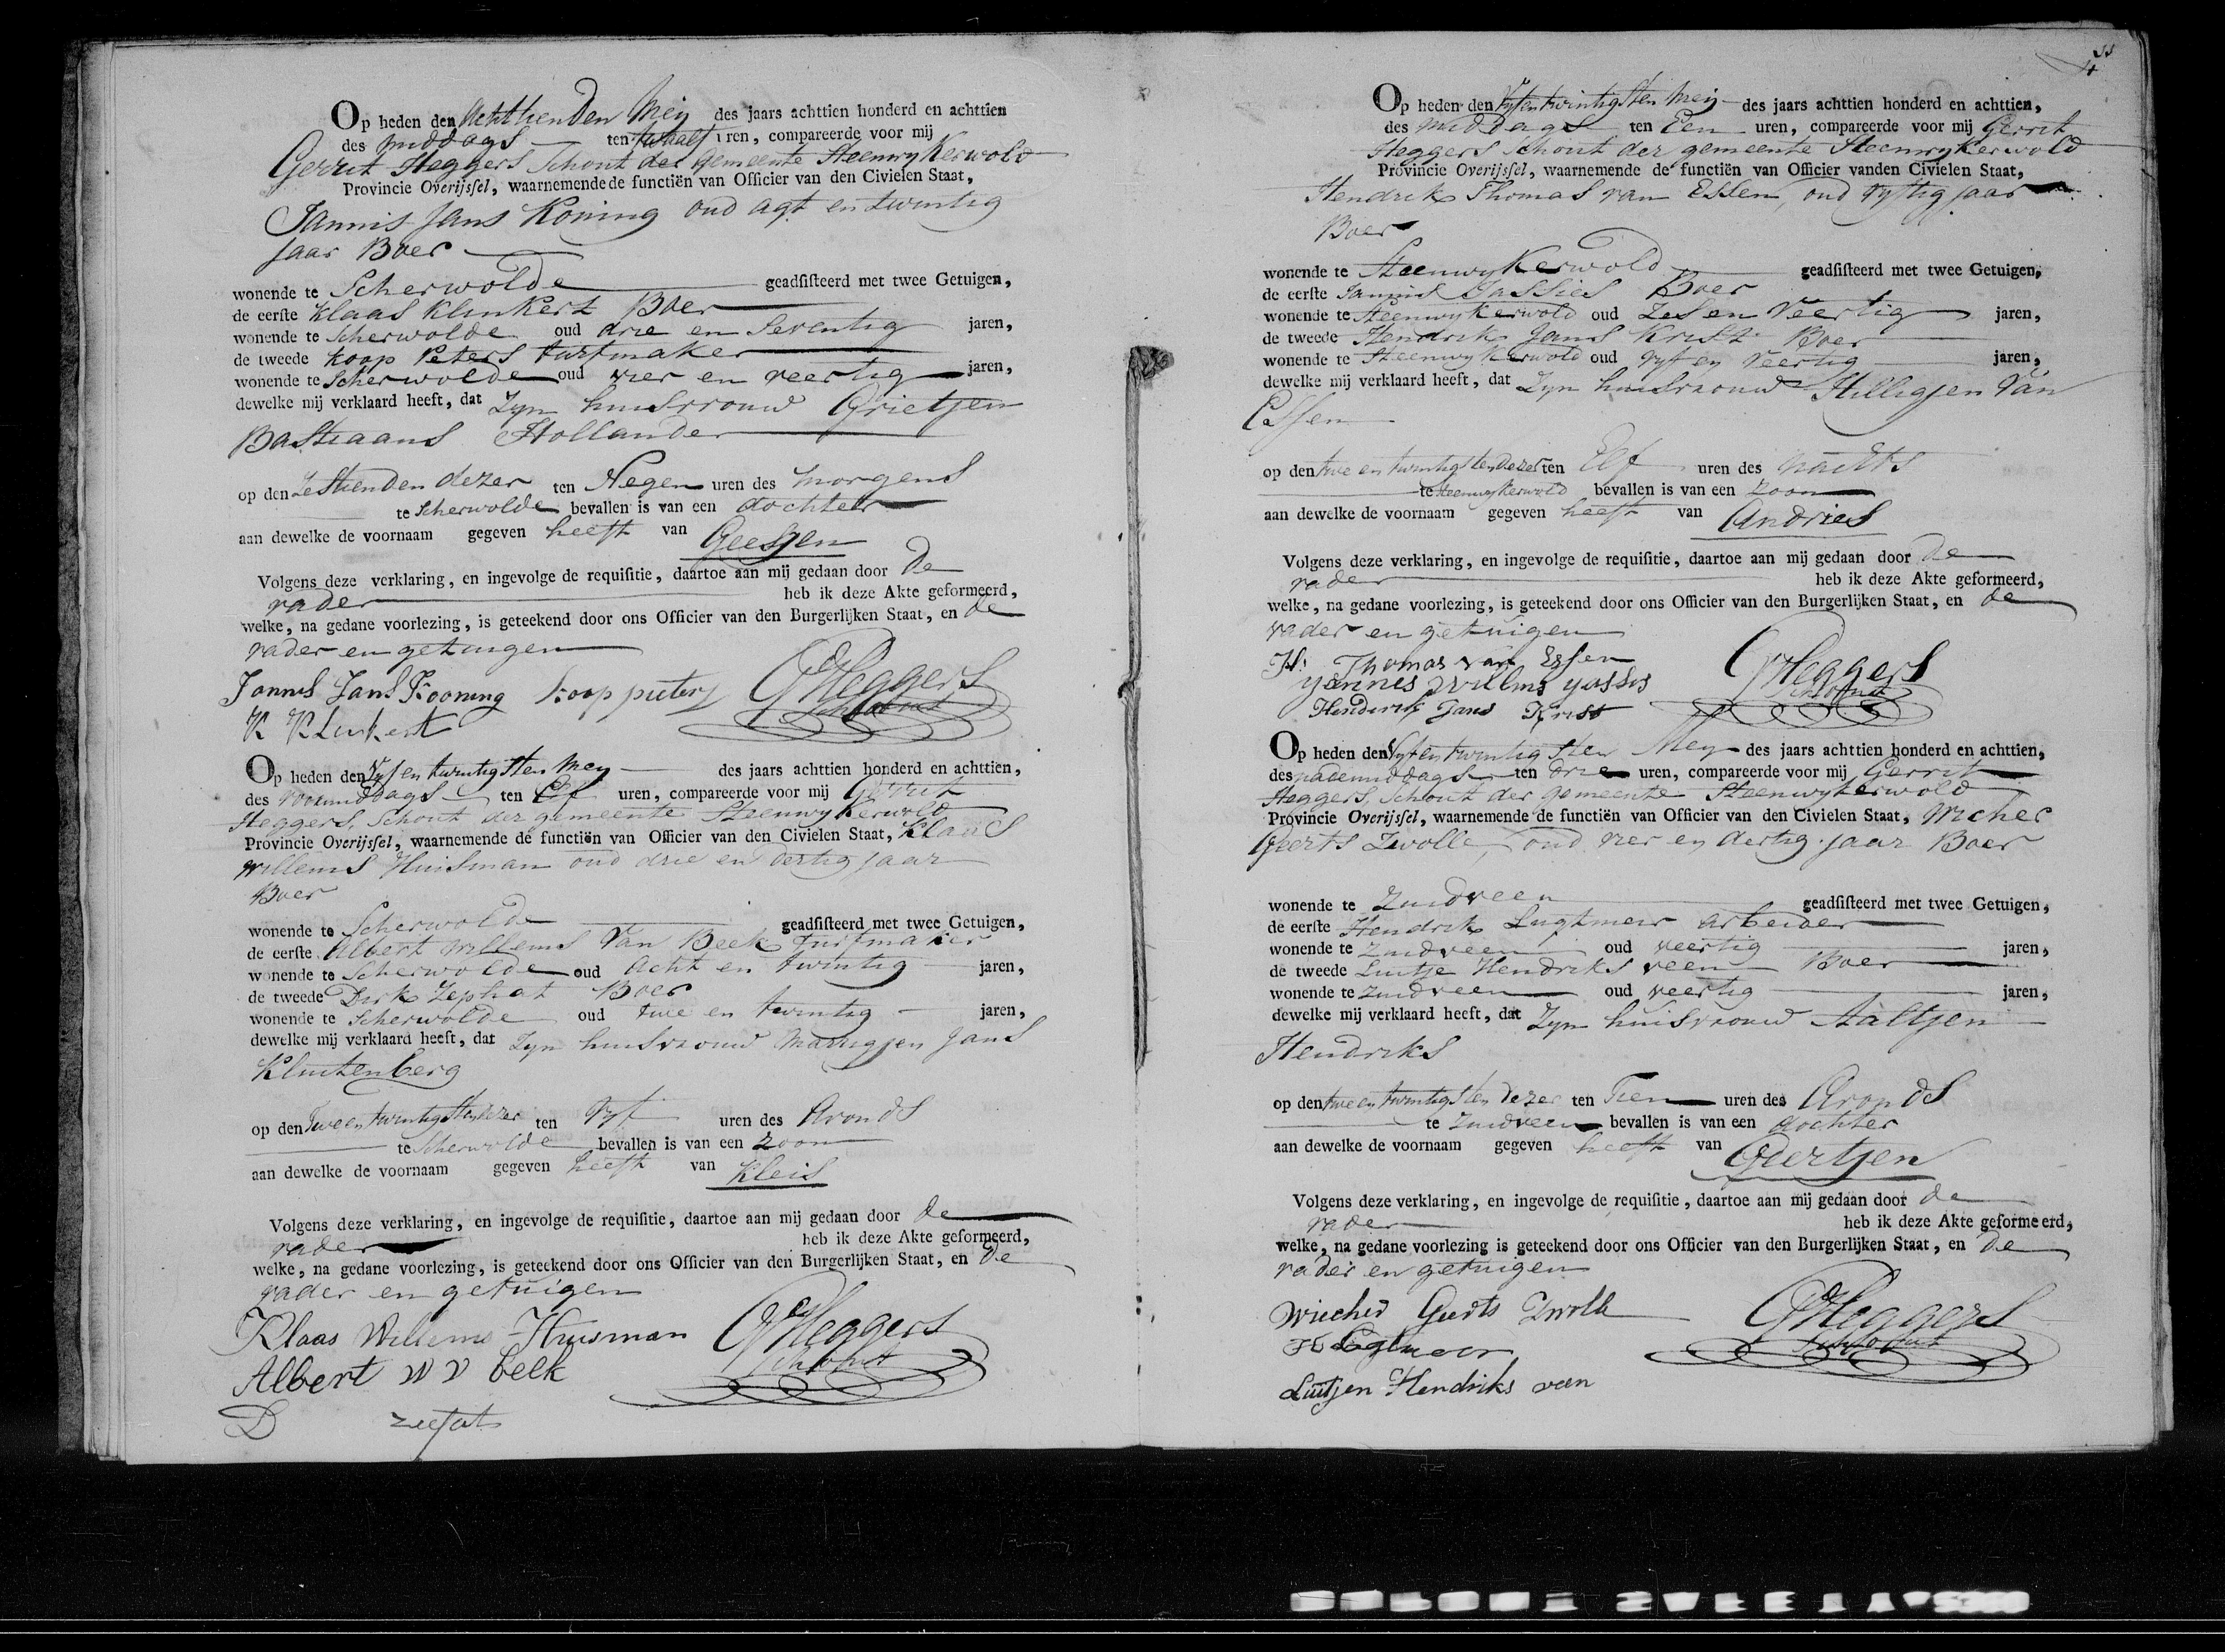 Op heden den Achttienden Meij des jaars achttien honderd en achttien
des middags ten twaalf uren, compareerde voor mij
Gerrit Heggers Schout der gemeente Steenwykerwold
Provincie Overijssel, waarnemende de functiën van Officier van den Civielen Staat,
Jannis Jans Koning oud agt en twintig
jaar Boer
wonende te Scherwolde geadsisteerd met twee Getuigen,
de eerste Klaas Klinkert Boer
wonende te Scherwolde oud drie en Seventig jaren,
de tweede Koop Peters turfmaker
wonende te Scherwolde oud vier en veertig jaren,
dewelke mij verklaard heeft, dat Zyn huisvrouw Grietjen
Bastiaans Hollander
op den Zestienden dezer ten Negen uren des morgens
te Scherwolde bevallen is van een dochter
aan dewelke de voornaam gegeven heeft van Geesjen
Volgens deze verklaring, en ingevolge de requisitie, daartoe aan mij gedaan door de
vader heb ik deze Akte geformeerd,
welke, na gedane voorlezing, is geteekend door ons Officier van den Burgerlijken Staat, en de
vader en getuigen
Jannis Jans Kooning Koop pieters GHeggers
K Klinkert Schout
Op heden den Vyf en twintigsten Mey des jaars achttien honderd en achttien,
des voormiddags ten Elf uren, compareerde voor mij Gerrit
Heggers, Schout der gemeente Steenwykerwold
Provincie Overijssel, waarnemende de functiën van Officier van den Civielen Staat, Klaas
Willems Huisman oud drie en dertig jaar
Boer
wonende te Scherwolde geadsisteerd met twee Getuigen,
de eerste Albert Willems Van Beek turfmaker
wonende te Scherwolde oud Acht en twintig jaren,
de tweede Dirk Zephat Boer
wonende te Scherwolde oud twee en twintig jaren,
dewelke mij verklaard heeft, dat Zyn huisvrouw Marrigjen Jans
Kluitenberg
op den Tweentwintigsten dezer ten Vyf uren des Avonds
te Scherwolde bevallen is van een zoon
aan dewelke de voornaam gegeven heeft van Kleis
Volgens deze verklaring, en ingevolge de requisitie, daartoe aan mij gedaan door de
vader heb ik deze Akte geformeerd,
welke, na gedane voorlezing, is geteekend door ons Officier van den Burgerlijken Staat, en de
vader en getuigen
Klaas Willems Huisman GHeggers
Albert W V beek Schout
D zeefat
Op heden den Vyfentwintigsten Meij des jaars achttien honderd en achttien,
des middags ten Een uren, compareerde voor mij Gerrit
Heggers Schout der gemeente Steenwykerwold
Provincie Overijssel, waarnemende de functiën van Officier vanden Civielen Staat,
Hendrik Thomas van Essen, oud vyftig jaar
Boer
wonende te Steenwykerwold geadsisteerd met twee Getuigen,
de eerste Jannis Jassies Boer
wonende te Steenwykerwold oud Zes en Veertig jaren,
de tweede Hendrik Jans Krist Boer
wonende te Steenwykerwold oud vyf en veertig jaren,
dewelke mij verklaard heeft, dat Zyn huisvrouw Hilligjen Van
Essen
op den twe en twintigsten dezer ten Elf uren des nachts
te Steenwykerwold bevallen is van een zoon
aan dewelke de voornaam gegeven heeft van Andries
Volgens deze verklaring, en ingevolge de requisitie, daartoe aan mij gedaan door de
vader heb ik deze Akte geformeerd,
welke, na gedane voorlezing, is geteekend door ons Officier van den Burgerlijken Staat, en de
vader en getuigen
H: Thomas van Essen GHeggers
yannes Wilms yassis Schout
Hendrik Jans Krist
Op heden den Vyfentwintigsten Mey des jaars achttien honderd en achttien,
des nademiddags ten drie uren, compareerde voor mij Gerrit
Heggers, Schout der gemeente Steenwykerwold
Provincie Overijssel, waarnemende de functiën van Officier van den Civielen Staat, Wicher
Geerts Zwolle, oud vier en dertig jaar Boer
wonende te Zuidveen geadsisteerd met twee Getuigen,
de eerste Hendrik Lugtmeir arbeider
wonende te Zuidveen oud veertig jaren,
de tweede Luitje Hendriks veen Boer
wonende te Zuidveen oud veertig jaren,
dewelke mij verklaard heeft, dat Zyn huisvrouw Aaltjen
Hendriks
op den tweentwintigsten dezer ten Tien uren des Avonds
te Zuidveen bevallen is van een dochter
aan dewelke de voornaam gegeven heeft van Geertjen
Volgens deze verklaring, en ingevolge de requisitie, daartoe aan mij gedaan door de
vader heb ik deze Akte geformeerd,
welke, na gedane voorlezing is geteekend door ons Officier van den Burgerlijken Staat, en de
vader en getuigen
Wiecher Geerts Zwolle GHeggers
H Lugtmeer Schout
Luitjen Hendriks veen